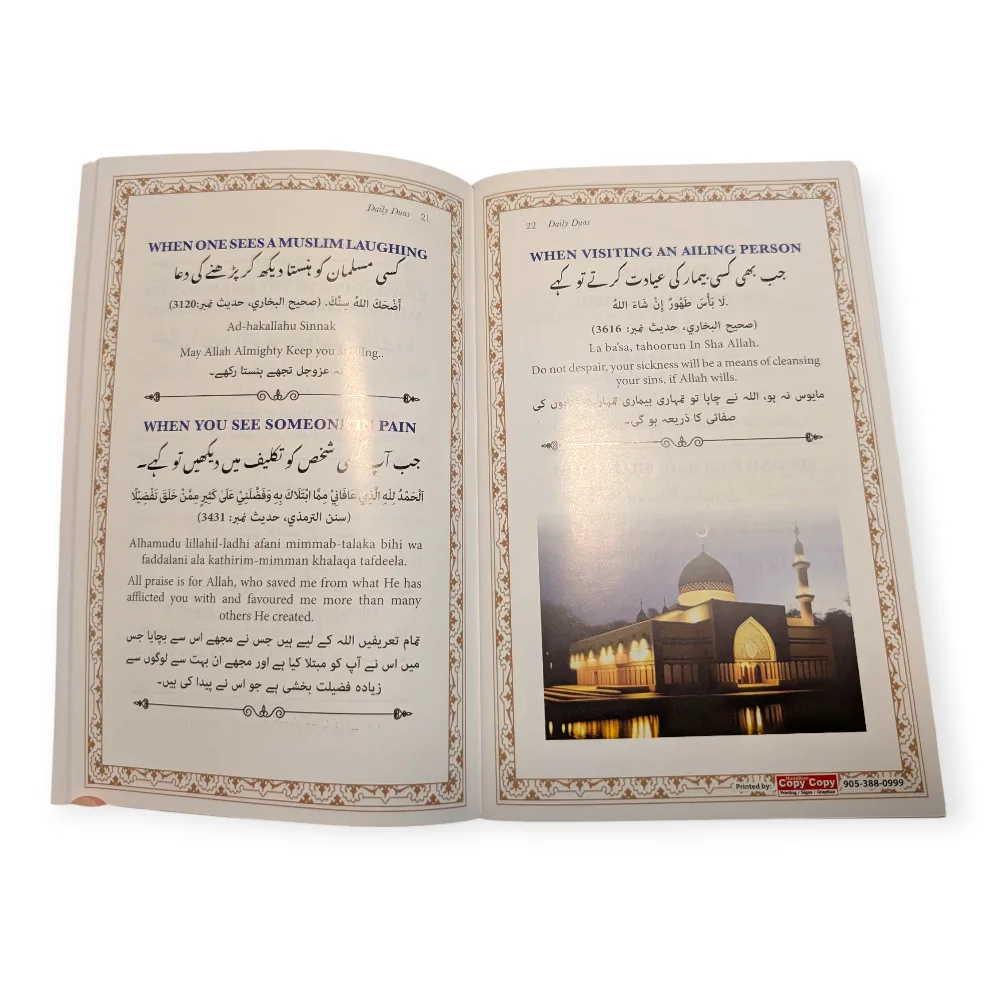 Daily Duas 21
WHEN ONE SEES A MUSLIM LAUGHING
کسی مسلمان کو ہنستا دیکھ کر پڑھنے کی دعا
أَضْحَكَ اللهُ سِنَّكَ. (صحيح البخاري، حدیث نمبر:3120)
Ad-hakallahu Sinnak
May Allah Almighty Keep you
عزوجل تجھے ہنستا رکھے۔
WHEN YOU SEE SOMEONE IN PAIN
جب آپ شخص کو تکلیف میں دیکھیں تو کہے۔
اَلْحَمْدُ لِلّٰهِ الَّذِيْ عَافَانِيْ مِمَّا ابْتَلَاكَ بِهِ وَفَضَّلَنِيْ عَلَى كَثِيْرٍ مِمَّنْ خَلَقَ تَفْضِيْلًا
(سنن الترمذي، حدیث نمبر: 3431)
Alhamudu lillahil-ladhi afani mimmab-talaka bihi wa
faddalani ala kathirim-mimman khalaqa tafdeela.
All praise is for Allah, who saved me from what He has
afflicted you with and favoured me more than many
others He created.
تمام تعریفیں اللہ کے لیے ہیں جس نے مجھے اس سے بچایا جس
میں اس نے آپ کو مبتلا کیا ہے اور مجھے ان بہت سے لوگوں سے
زیادہ فضیلت بخشی ہے جو اس نے پیدا کی ہیں۔
22 Daily Duas
WHEN VISITING AN AILING PERSON
جب بھی کسی بیمار کی عیادت کرتے تو کہے
لَا بَأْسَ طَهُورٌ إِنْ شَاءَ اللهُ.
(صحيح البخاري، حدیث نمبر: 3616)
La ba'sa, tahoorun In Sha Allah.
Do not despair, your sickness will be a means of cleansing
your sins, if Allah wills.
مایوس نہ ہو، اللہ نے چاہا تو تمہاری بیماری تمہارے کی
صفائی کا ذریعہ ہو گی۔
Printed by: Hamilton Copy Copy Printing / Signs / Graphics 905-388-0999